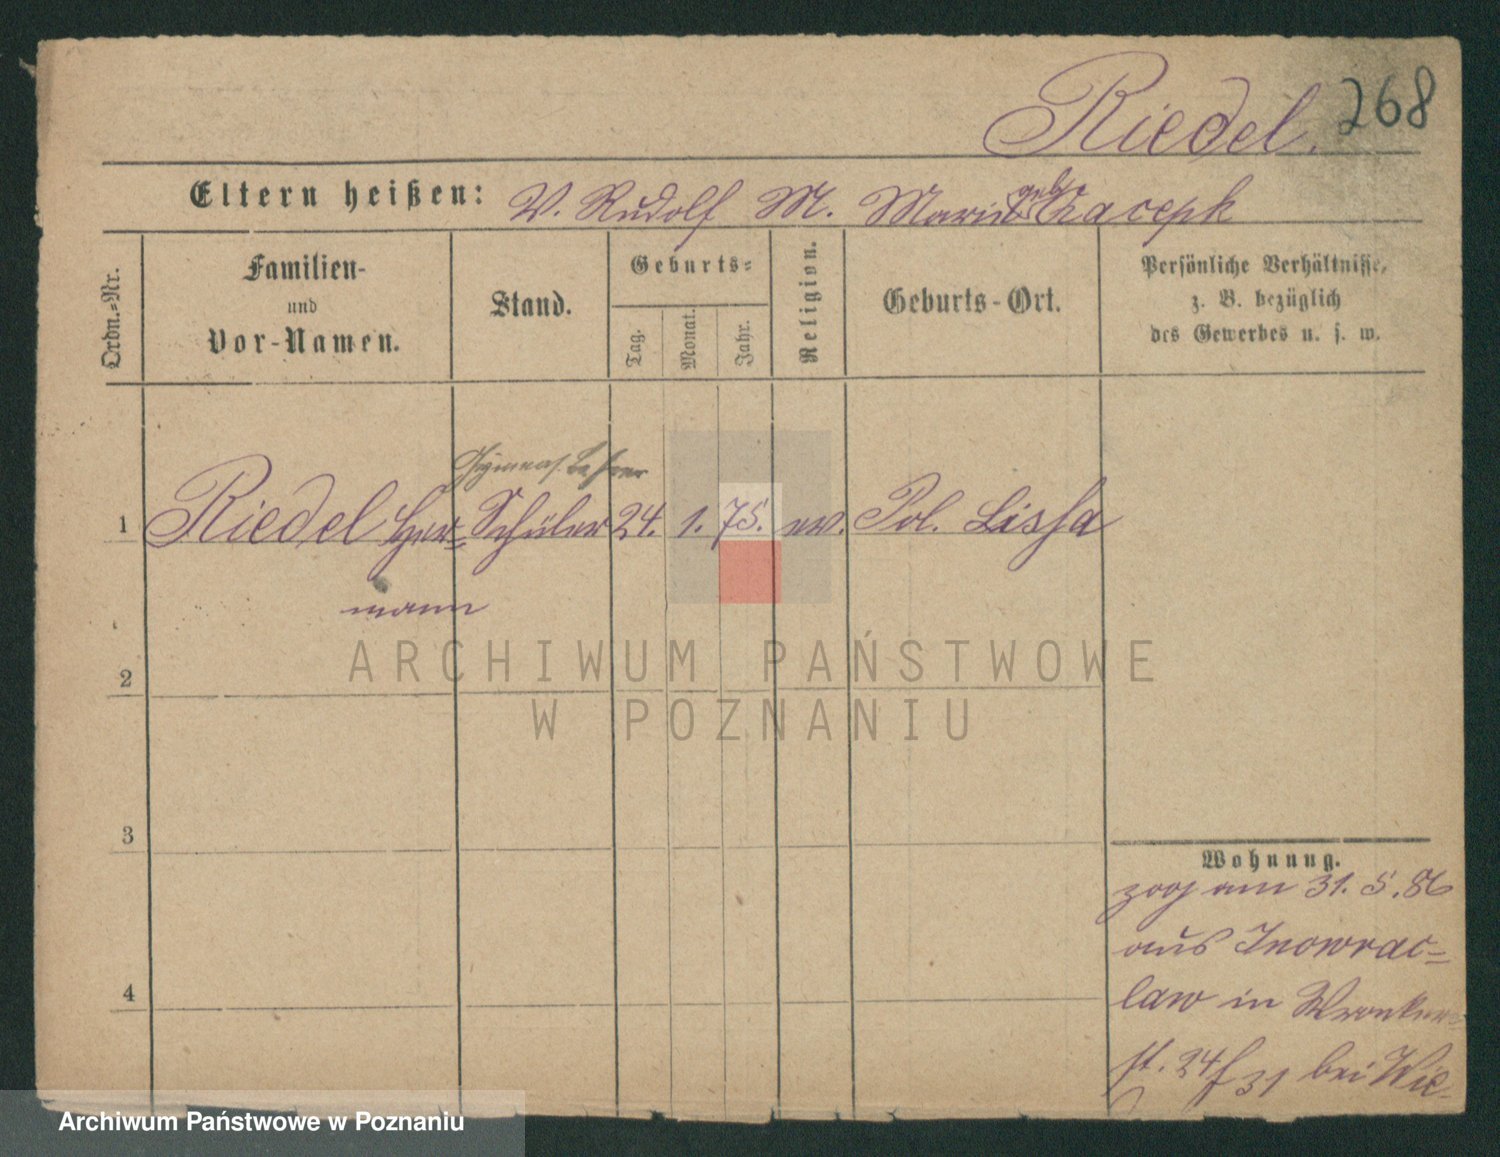 Riedel. 268
Eltern heißen: V. Rudolf M. Marie geb. Kacepk
Ordn.-Nr.
Familien-
und
Vor-Namen.
Stand.
Geburts-
Tag.
Monat.
Jahr.
Religion.
Geburts-Ort.
Persönliche Verhältnisse,
z. B. bezüglich
des Gewerbes u. s. w.
Gymnas. Lehrer
1 Riedel Her= Schüler 24. 1. 75. ev. Pol. Lissa
mann
2
3
4
Wohnung.
zog am 31. 5. 86
aus Inowrac=
law in Wronker=
st. 24/31 bei Wie-
ARCHIWUM PAŃSTWOWE
W POZNANIU
Archiwum Państwowe w Poznaniu